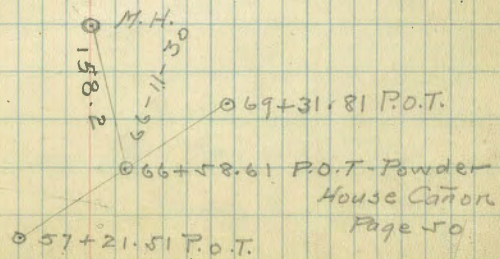 M.H.
158.2
69-11-30
69+31.81 P.O.T.
66+58.61 P.O.T-Powder
House Cañon
Page 50
57+21.51 P.O.T.